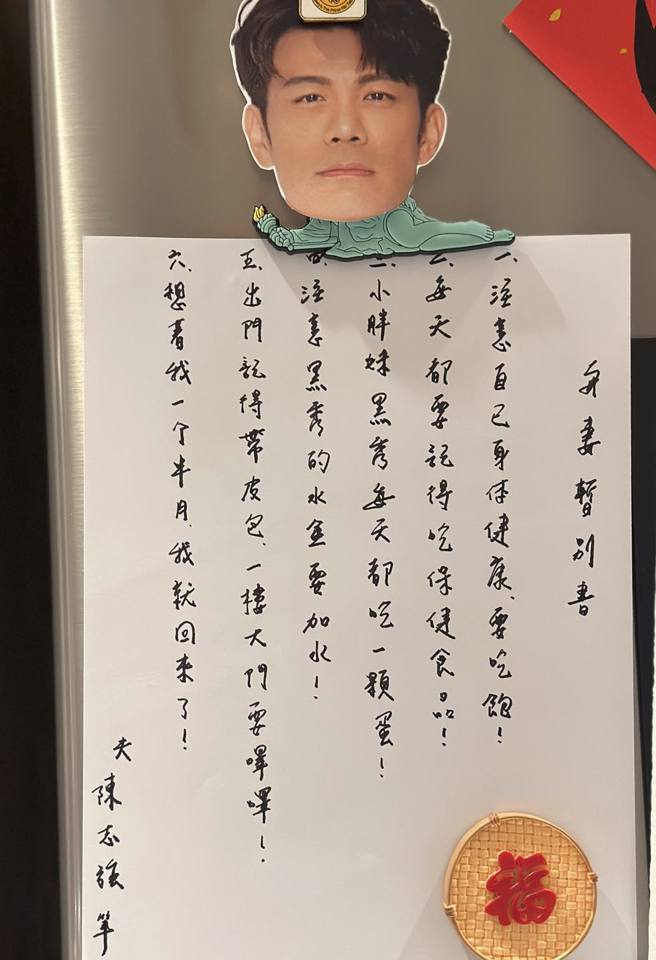 與妻暫別書
一、注意自己身体健康、要吃飽！
二、每天都要記得吃保健食品！
三、小胖妹黑秀每天都吃一顆蛋！
四、注意黑秀的水盆要加水！
五、出門記得帶皮包、一樓大門要嗶嗶！
六、想著我一个半月、我就回來了！
夫 陳志強 筆
福